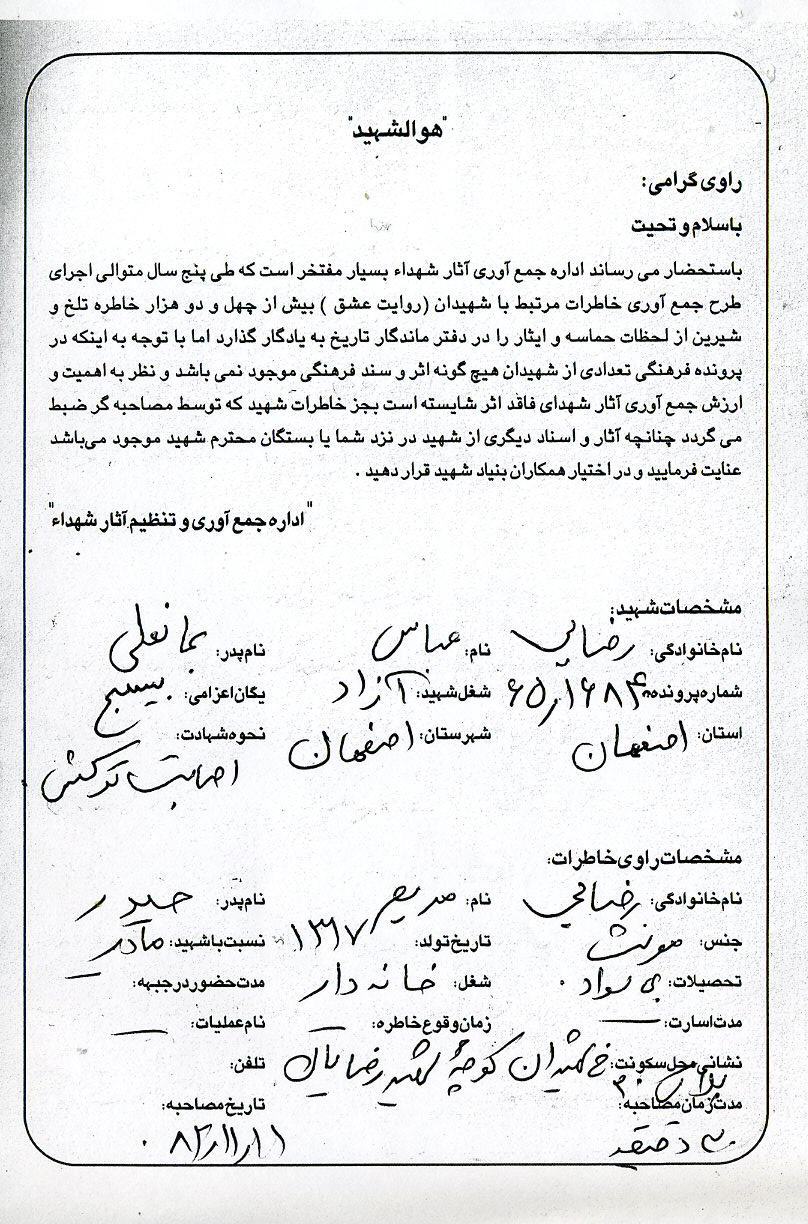 "هوالشهید"
راوی گرامی:
باسلام و تحیت
باستحضار می رساند اداره جمع آوری آثار شهداء بسیار مفتخر است که طی پنج سال متوالی اجرای
طرح جمع آوری خاطرات مرتبط با شهیدان (روایت عشق ) بیش از چهل و دو هزار خاطره تلخ و
شیرین از لحظات حماسه و ایثار را در دفتر ماندگار تاریخ به یادگار گذارد اما با توجه به اینکه در
پرونده فرهنگی تعدادی از شهیدان هیچ گونه اثر و سند فرهنگی موجود نمی باشد و نظر به اهمیت و
ارزش جمع آوری آثار شهدای فاقد اثر شایسته است بجز خاطرات شهید که توسط مصاحبه گر ضبط
می گردد چنانچه آثار و اسناد دیگری از شهید در نزد شما یا بستگان محترم شهید موجود می‌باشد
عنایت فرمایید و در اختیار همکاران بنیاد شهید قرار دهید .
"اداره جمع آوری و تنظیم آثار شهداء"
مشخصات شهید:
نام خانوادگی: رضایی نام: عباس نام پدر: بمانعلی
شماره پرونده: ۶۵،۱۶۸۴ شغل شهید: آزاد یگان اعزامی: بسیج
استان: اصفهان شهرستان: اصفهان نحوه شهادت:
اصابت ترکش
مشخصات راوی خاطرات:
نام خانوادگی: رضایی نام: مریم نام پدر: حیدر
جنس: مونث تاریخ تولد: ۱۳۱۷ نسبت باشهید: مادر
تحصیلات: بی سواد . شغل: خانه دار مدت حضور در جبهه: —
مدت اسارت: — زمان وقوع خاطره: — نام عملیات: —
نشانی محل سکونت: خ کوچه شهید رضایی تلفن:
پلاک ۳۰
مدت زمان مصاحبه: تاریخ مصاحبه:
۳۰ دقیقه ۸۲/۱۱/۱۱